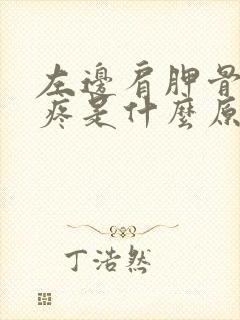 左邊肩胛骨
疼是什麼原
丁浩然